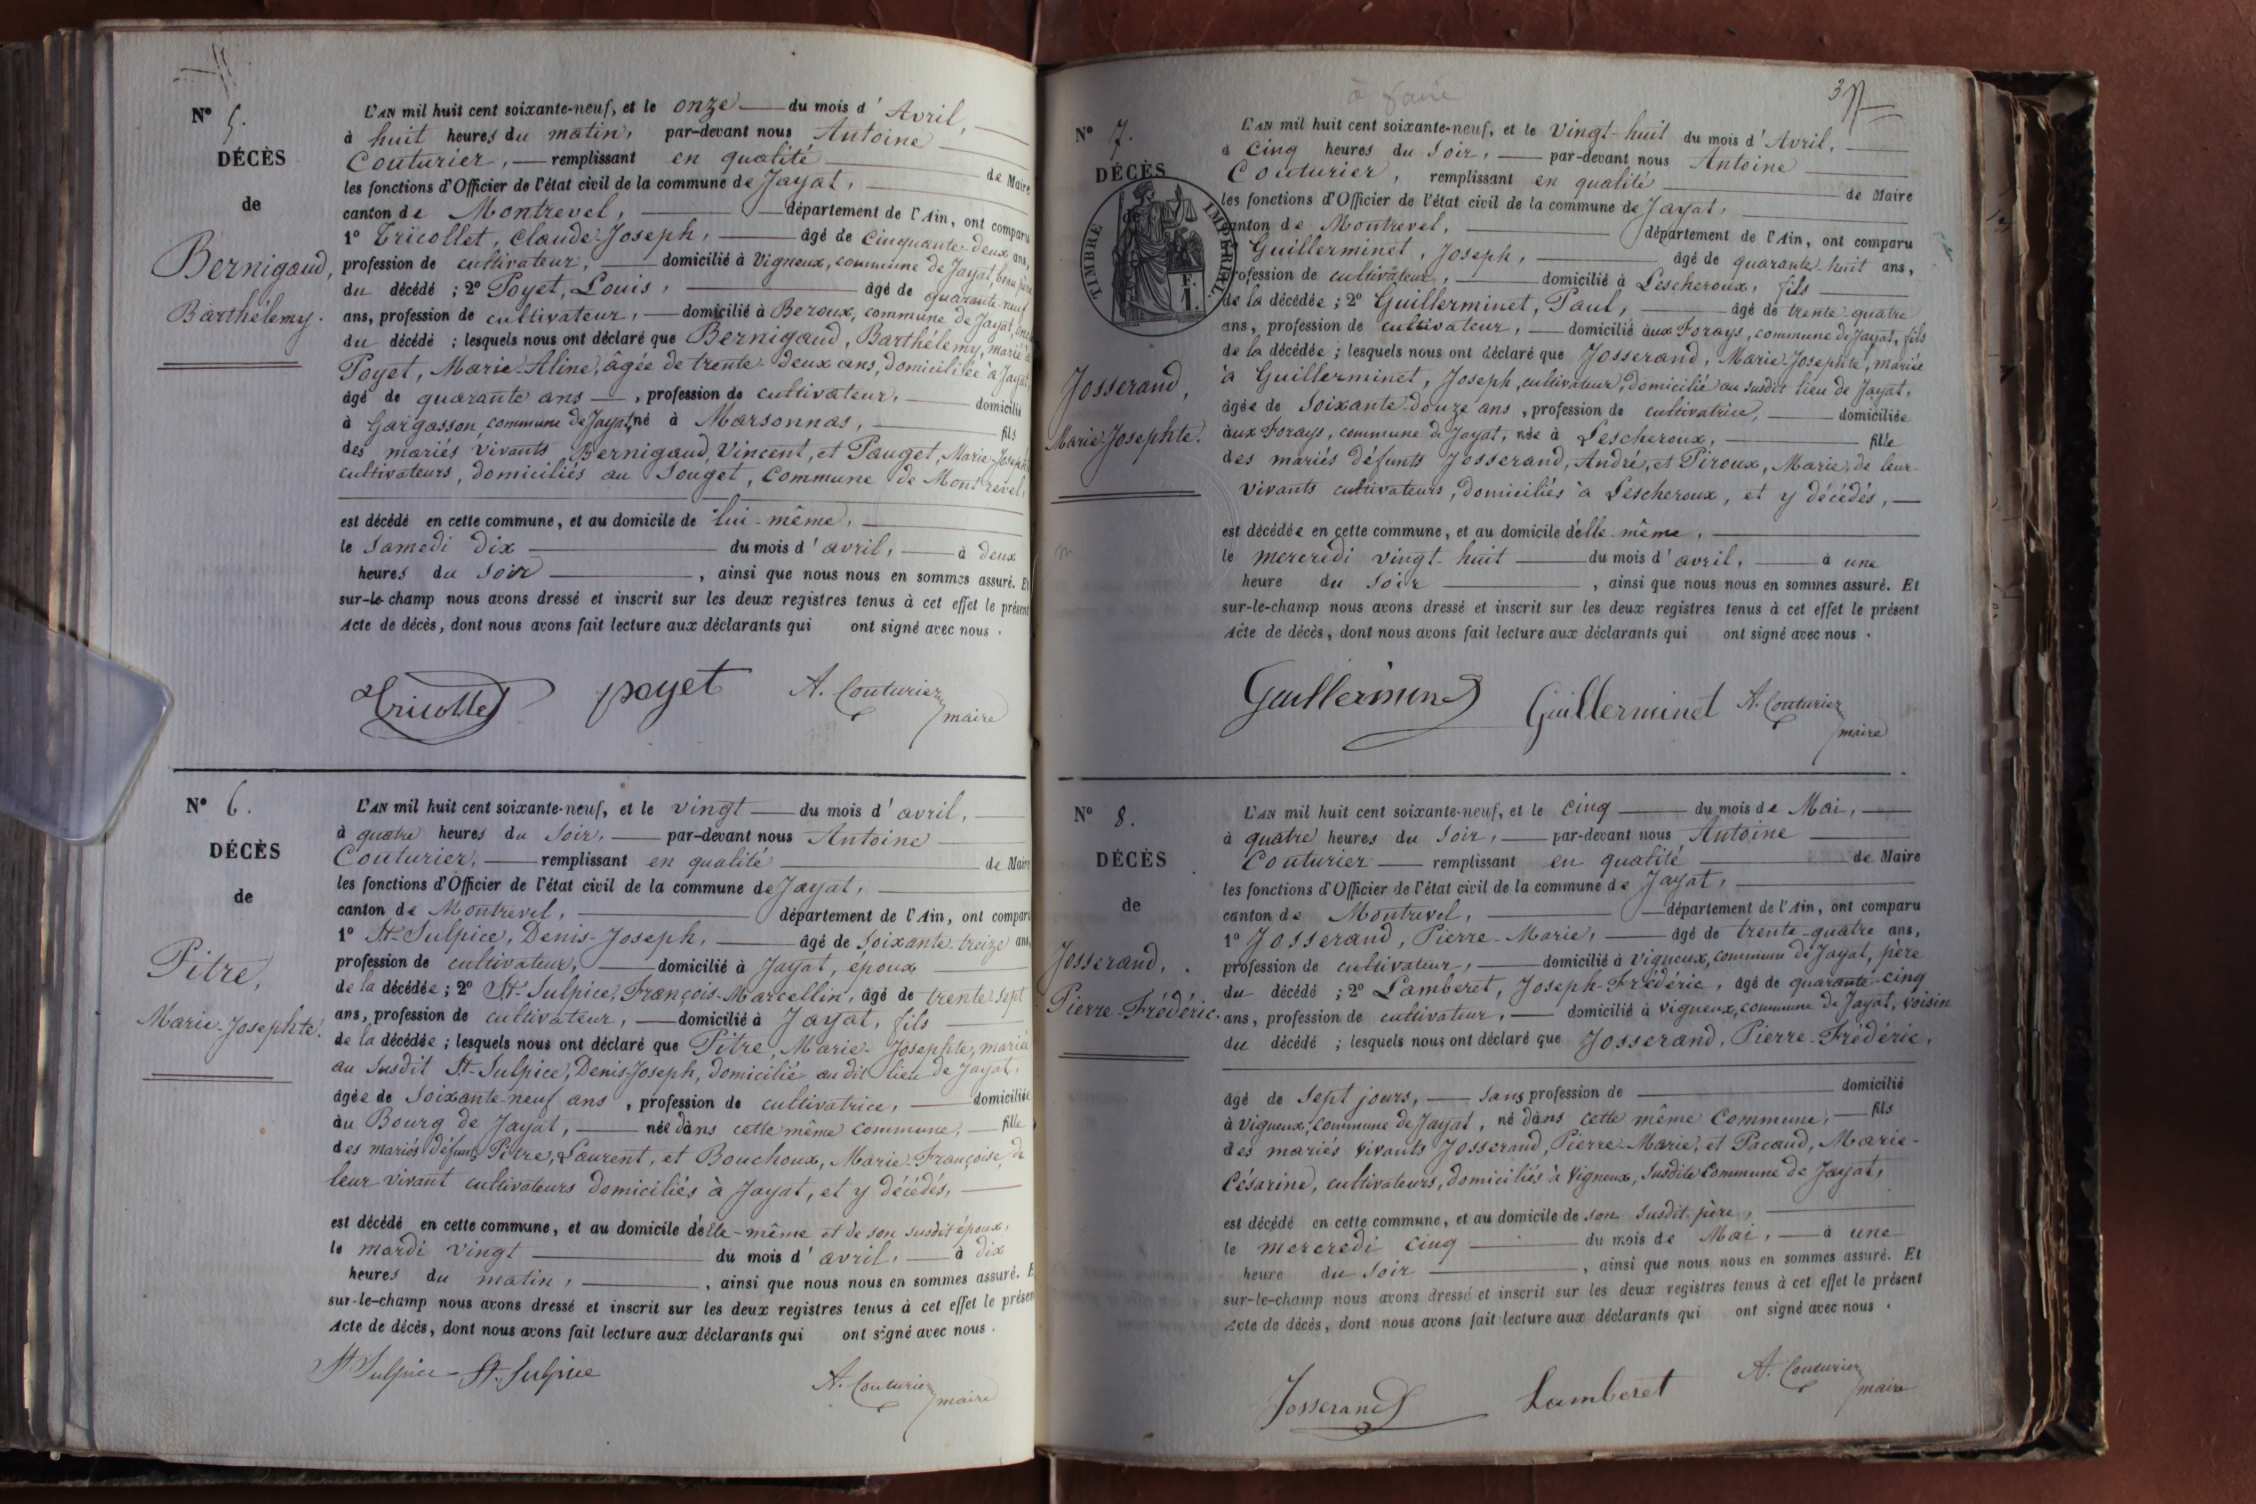 N° 5.
DÉCÈS
de
Bernigaud,
Barthélemy.
L'AN mil huit cent soixante-neuf, et le onze du mois d'Avril,
à huit heures du matin, par-devant nous Antoine
Couturier, remplissant en qualité de Maire
les fonctions d'Officier de l'état civil de la commune de Jayat,
canton de Montrevel, département de l'Ain, ont comparu
1° Tricollet, Claude-Joseph, âgé de cinquante-deux ans,
profession de cultivateur, domicilié à Vigneux, commune de Jayat, beau
du décédé ; 2° Poyet, Louis, âgé de quarante-neuf
ans, profession de cultivateur, domicilié à Beroux, commune de Jayat,
du décédé ; lesquels nous ont déclaré que Bernigaud, Barthélemy, marié à
Poyet, Marie-Aline, âgée de trente-deux ans, domiciliée à Jayat
âgé de quarante ans, profession de cultivateur, domicilié
à Gargasson, commune de Jayat, né à Marsonnas, fils
des mariés vivants Bernigaud, Vincent, et Pauget, Marie-Josephte
cultivateurs, domiciliés au Souget, commune de Montrevel,
est décédé en cette commune, et au domicile de lui-même,
le samedi dix du mois d'avril, à deux
heures du soir, ainsi que nous nous en sommes assuré. Et
sur-le-champ nous avons dressé et inscrit sur les deux registres tenus à cet effet le présent
Acte de décès, dont nous avons fait lecture aux déclarants qui ont signé avec nous.
Tricollet poyet A. Couturier
maire
N° 6.
DÉCÈS
de
Pitre,
Marie-Josephte.
L'AN mil huit cent soixante-neuf, et le vingt du mois d'avril,
à quatre heures du soir, par-devant nous Antoine
Couturier, remplissant en qualité de Maire
les fonctions d'Officier de l'état civil de la commune de Jayat,
canton de Montrevel, département de l'Ain, ont comparu
1° St-Sulpice, Denis-Joseph, âgé de soixante-treize ans,
profession de cultivateur, domicilié à Jayat, époux
de la décédée ; 2° St-Sulpice, François-Marcellin, âgé de trente-sept
ans, profession de cultivateur, domicilié à Jayat, fils
de la décédée ; lesquels nous ont déclaré que Pitre, Marie-Josephte, mariée
au susdit St-Sulpice, Denis-Joseph, domicilié au dit lieu de Jayat,
âgée de soixante-neuf ans, profession de cultivatrice, domiciliée
au Bourg de Jayat, née dans cette même commune, fille
des mariés défunts Pitre, Laurent, et Bouchoux, Marie-Françoise, de
leur vivant cultivateurs domiciliés à Jayat, et y décédés,
est décédé en cette commune, et au domicile d'elle-même et de son susdit époux,
le mardi vingt du mois d'avril, à dix
heures du matin, ainsi que nous nous en sommes assuré. E
sur-le-champ nous avons dressé et inscrit sur les deux registres tenus à cet effet le présen
Acte de décès, dont nous avons fait lecture aux déclarants qui ont signé avec nous.
St Sulpice St. Sulpice A. Couturier
maire
à faire
37
N° 7.
DÉCÈS
de
TIMBRE IMPÉRIAL.
F.
1
Josserand,
Marie-Josephte.
L'AN mil huit cent soixante-neuf, et le vingt-huit du mois d'Avril,
à cinq heures du soir, par-devant nous Antoine
Couturier, remplissant en qualité de Maire
les fonctions d'Officier de l'état civil de la commune de Jayat,
canton de Montrevel, département de l'Ain, ont comparu
Guillerminet, Joseph, âgé de quarante-huit ans,
profession de cultivateur, domicilié à Lescheroux, fils
de la décédée ; 2° Guillerminet, Paul, âgé de trente-quatre
ans, profession de cultivateur, domicilié aux Forays, commune de Jayat, fils
de la décédée ; lesquels nous ont déclaré que Josserand, Marie-Josephte, mariée
à Guillerminet, Joseph, cultivateur, domicilié au susdit lieu de Jayat,
âgée de soixante-douze ans, profession de cultivatrice, domiciliée
aux Forays, commune de Jayat, née à Lescheroux, fille
des mariés défunts Josserand, André, et Piroux, Marie, de leur
vivants cultivateurs, domiciliés à Lescheroux, et y décédés,
est décédée en cette commune, et au domicile d'elle-même,
le mercredi vingt-huit du mois d'avril, à une
heure du soir, ainsi que nous nous en sommes assuré. Et
sur-le-champ nous avons dressé et inscrit sur les deux registres tenus à cet effet le présent
Acte de décès, dont nous avons fait lecture aux déclarants qui ont signé avec nous.
Guillerminet Guillerminet A. Couturier
maire
N° 8.
DÉCÈS
de
Josserand,
Pierre-Frédéric.
L'AN mil huit cent soixante-neuf, et le cinq du mois de Mai,
à quatre heures du soir, par-devant nous Antoine
Couturier remplissant en qualité de Maire
les fonctions d'Officier de l'état civil de la commune de Jayat,
canton de Montrevel, département de l'Ain, ont comparu
1° Josserand, Pierre-Marie, âgé de trente-quatre ans,
profession de cultivateur, domicilié à Vigneux, commune de Jayat, père
du décédé ; 2° Lamberet, Joseph-Frédéric, âgé de quarante-cinq
ans, profession de cultivateur, domicilié à Vigneux, commune de Jayat, voisin
du décédé ; lesquels nous ont déclaré que Josserand, Pierre-Frédéric,
âgé de sept jours, sans profession de domicilié
à Vigneux, commune de Jayat, né dans cette même commune, fils
des mariés vivants Josserand, Pierre-Marie, et Pacaud, Marie-
Césarine, cultivateurs, domiciliés à Vigneux, susdite commune de Jayat,
est décédé en cette commune, et au domicile de son susdit père,
le mercredi cinq du mois de Mai, à une
heure du soir, ainsi que nous nous en sommes assuré. Et
sur-le-champ nous avons dressé et inscrit sur les deux registres tenus à cet effet le présent
Acte de décès, dont nous avons fait lecture aux déclarants qui ont signé avec nous.
Josserand Lamberet A. Couturier
maire